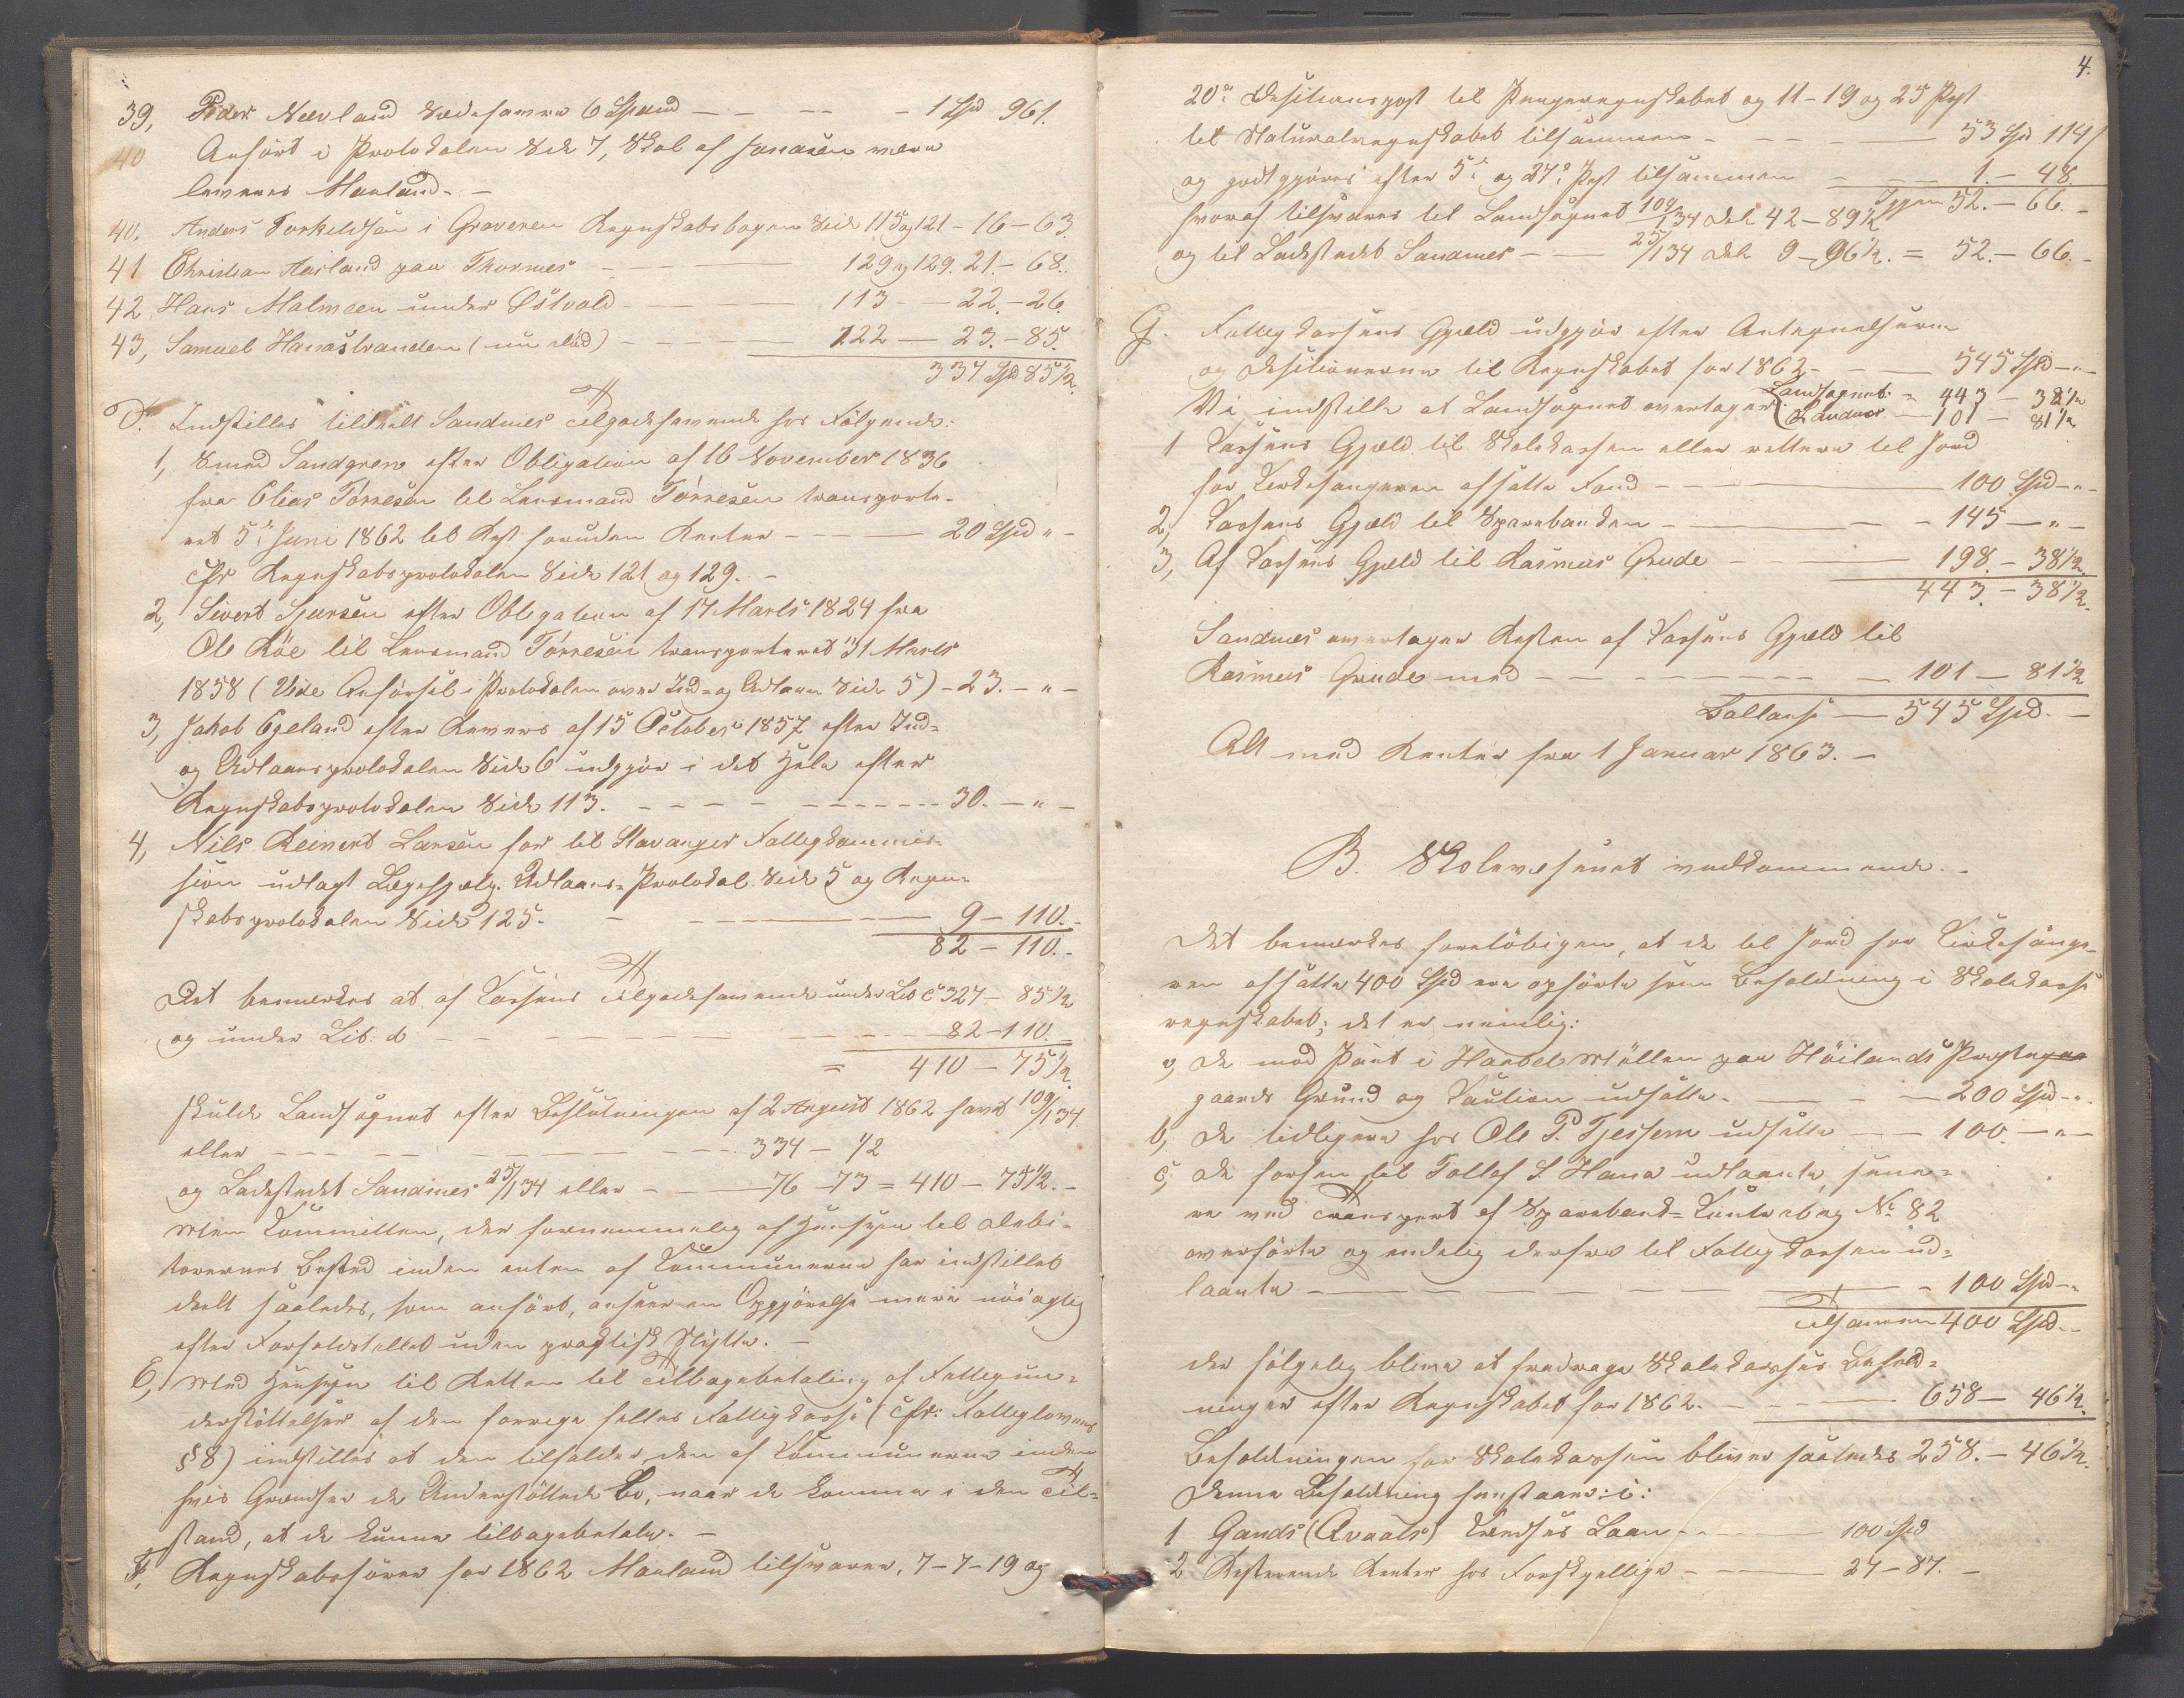 39, Peder Nævland Sædesamme 6 Spand — — — 1 Spd 961.
40 Anført i Protokolen Side 7, Skal af Jonasen være
leveres Maaland. —
40. Anders Torkeldsen i Graveren Regnskabsbogen Side 115 og 121 — 16 — 63.
41 Christian Aasland paa Thormes — — — 129 og 129. 21. — 68.
42 Hans Malmeen under Østvold — — — 113 — 22. — 26.
43, Samuel Hanastranden (nu død) — — — 122 — 23. — 85.
334 Spd 85½.
D. Indstilles tildeelt Sandnes Tilgodehavende hos Følgende:
1, Smed Sandgren efter Obligation af 16 November 1836
fra Elias Tørresen til Lensmand Tørresen transporte-
ret 5te Juni 1862 til Rest foruden Renter — — — 20 Spd " —
cfr Regnskabsprotokolen Side 121 og 129. —
2, Sivert Sjursen efter Obligation af 17 Marts 1824 fra
Ole Røe til Lensmand Tørresen transporteret 31 Marts
1858 (Vide Anførsel i Protokolen over Ind- og Udlaan Side 5) — 23. — " —
3, Jakob Egeland efter Revers af 15 October 1857 efter Ind-
og Udlaansprotokolen Side 6 udgjør i det Hele efter
Regnskabsprotokolen Side 113. — — — 30. — " —
4, Nils Reinert Larsen for til Stavanger Fattigkommis-
sion udlagt Lægehjælp. Udlaans-Protokol Side 5 og Regn-
skabsprotokolen Side 125. — — — 9 — 110. —
82 — 110. —
Det bemærkes at af Kassens Tilgodehavende under Lit C 327 — 85½
og under Lit: d — — — 82 — 110.
= 410 — 75½.
skulde Landsognet efter Beslutningen af 2 August 1862 havt 109/134.
eller — — — 334 — ½
og Ladestedet Sandnes 25/134 eller — — 76 — 73 = 410 — 75½. —
Men Committeen, der fornemmelig af Hensyn til Debi-
torernes Bosted inden enten af Kommunerne har indstillet
deelt saaledes, som anført, anseer en Opgjørelse mere nøiagtig
efter Forholdstallet uden praktisk Nytte. —
E, Med Hensyn til Retten til Tilbagebetaling af Fattigun-
derstøttelser af den forrige fælles Fattigkasse (cfr: Fattiglovens
§ 8) indstilles at den tilfalder den af Kommunerne inden
hvis Grændser de Understøttede bo, naar de komme i den Til-
stand, at de kunne tilbagebetale. —
F, Regnskabsfører for 1862 Maaland tilsvarer, 7 — 7 — 19 og
4.
20de Desitionspost til Pengeregnskabet og 11 — 19 og 25 Post
til Naturalregnskabet tilsammen — — — 53 Spd 114/
og godtgjøres efter 5te og 27de Post tilsammen — — 1. — 48.
Igjen 52. — 66. —
hvoraf tilsvares til Landsognet 109/134 Dele 42 — 89½
og til Ladestedet Sandnes — — 25/134 Dele 9 — 96½. = 52. — 66. —
G. Fattigkassens Gjæld udgjør efter Antegnelserne
og Desitionerne til Regnskabet for 1862 — — 545 Spd — " —
Vi indstille at Landsognet overtager: Landsognet = 443 — 38½
Sandnes — 101 — 81½
1 Kassens Gjæld til Skolekassen eller rettere til Jord
for Kirkesangeren afsatte Fond — — — 100 Spd — " —
2, Kassens Gjæld til Sparebanken — — — 145 — " —
3, Af Kassens Gjæld til Rasmus Grude — — — 198. — 38½.
443. — 38½.
Sandnes overtager Resten af Kassens Gjæld til
Rasmus Grude med — — — 101 — 81½
Ballanse — 545 Spd. —
Alt med Renter fra 1 Januar 1863. —
B. Skolevæsenet vedkommende. —
Det bemærkes foreløbigen, at de til Jord for Kirkesange-
ren afsatte 400 Spd ere opførte som Beholdning i Skolekasse
regnskabet; det er nemlig:
a, De mod Pant i Handelsmøllen paa Høilands Prestegaards
gaards Grund og Kaution udsatte. — — — 200 Spd — " .
b, De tidligere hos Ole P. Tjessem udsatte — — 100. — " —
c, De forhen til Tollef S. Hana udlaante, sene-
re ved Transport af Sparebank-Contrabog No 82
overførte og endelig derfra til Fattigkassen ud-
laante — — — 100 Spd — "
Tilsammen 400 Spd. —
der følgelig blive at fradrage Skolekassens Behold-
ninger efter Regnskabet for 1862. — — — 658 — 46½.
Beholdningen for Skolekassen bliver saaledes 258. — 46½.
Denne Beholdning henstaaer: i:
1 Gands (Qvaals) Kredses Laan — — — 100 Spd
2 Resterende Renter hos Forskjellige — — — 24 — 87. —